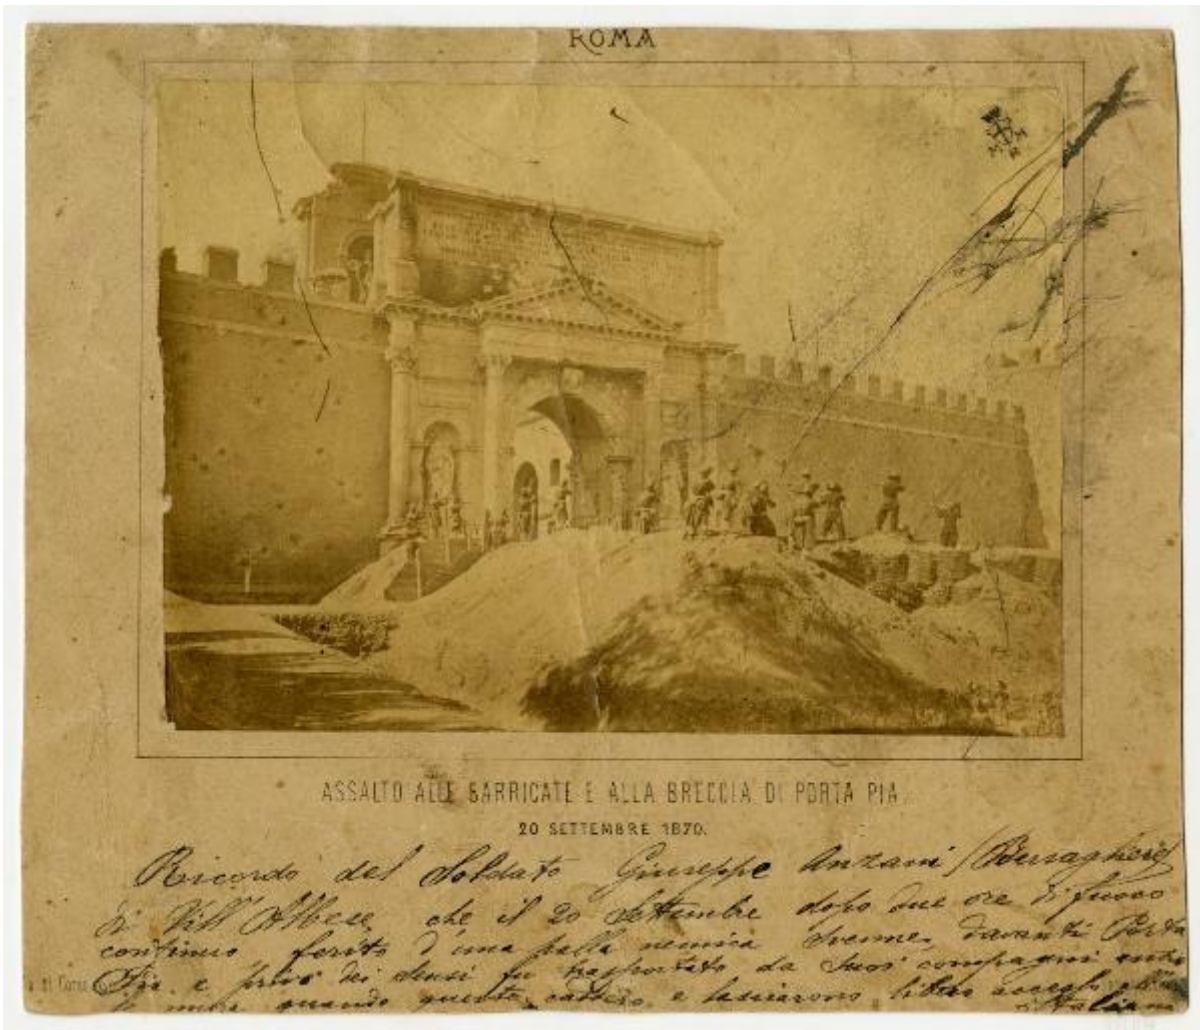 ROMA
ASSALTO ALLE BARRICATE E ALLA BRECCIA DI PORTA PIA
20 SETTEMBRE 1870.
Ricordo del Soldato Giuseppe Anzani (Bersagliere)
di Vill'Albese, che il 20 Settembre dopo due ore di fuoco
continuo ferito d'una palla nemica svenne davanti Porta
Pia e privo dei sensi fu trasportato da suoi compagni entro
le mura quando queste caddero e lasciarono libero